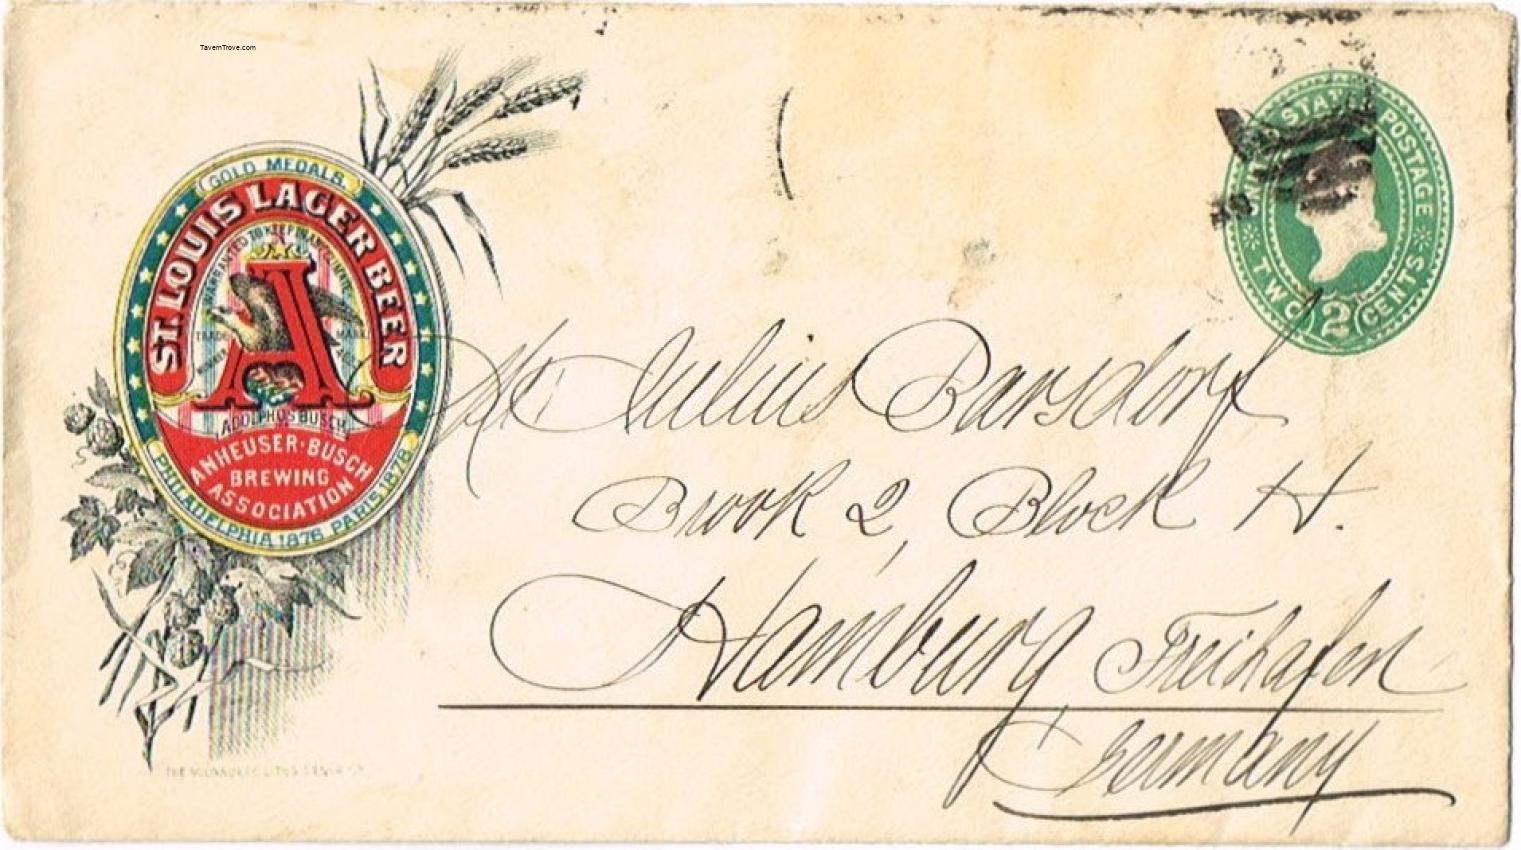 TavernTrove.com
GOLD MEDALS.
ST. LOUIS LAGER BEER
WARRANTED TO KEEP IN ANY
TRADE MARK
A
ADOLPHUS BUSCH
ANHEUSER-BUSCH
BREWING
ASSOCIATION
PHILADELPHIA 1876 PARIS 1878
UNITED STATES POSTAGE
TWO 2 CENTS
Mr Julius Barsdorf
Brook 2, Block H.
Hamburg Freihafen
Germany
THE MILWAUKEE LITHO & ENGR. CO.